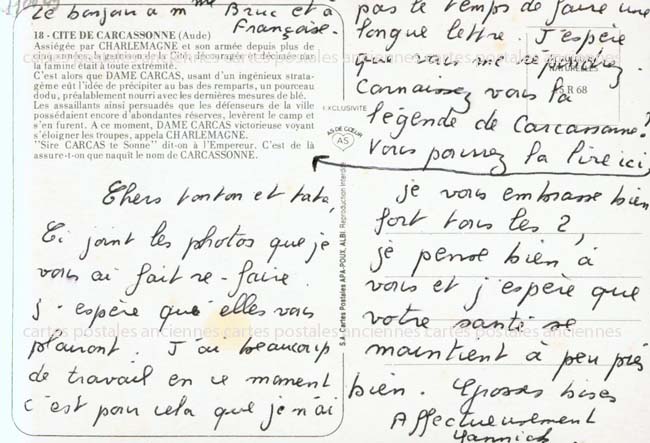 le bonjour à mme Bruc et à
Françoise.
18 - CITE DE CARCASSONNE (Aude)
Assiégée par CHARLEMAGNE et son armée depuis plus de
la famine était à toute extrémité.
C'est alors que DAME CARCAS, usant d'un ingénieux strata-
gème eût l'idée de précipiter au bas des remparts, un pourceau
dodu, préalablement nourri avec les dernières mesures de blé.
Les assaillants ainsi persuadés que les défenseurs de la ville
possédaient encore d'abondantes réserves, levèrent le camp et
s'en furent. A ce moment, DAME CARCAS victorieuse voyant
s'éloigner les troupes, appela CHARLEMAGNE.
"Sire CARCAS te Sonne" dit-on à l'Empereur. C'est de là
assure-t-on que naquit le nom de CARCASSONNE.
Chers tonton et tata,
Ci joint les photos que je
vous ai fait re-faire.
J'espère qu'elles vous
plairont. J'ai beaucoup
de travail en ce moment
c'est pour cela que je n'ai
EXCLUSIVITE
AS DE CŒUR
AS
S.A. Cartes Postales APA-POUX, ALBI. Reproduction Interdite
pas le temps de faire une
longue lettre. J'espère
que vous me répondrez.
Connaissez vous la
légende de Carcassonne?
Vous pouvez la lire ici
5 R 68
je vous embrasse bien
fort tous les 2,
je pense bien à
vous et j'espère que
votre santé se
maintient à peu près
bien. Grosses bises
Affectueusement
Yannick
cartes postales anciennes cartes postales anciennes cartes postales anciennes